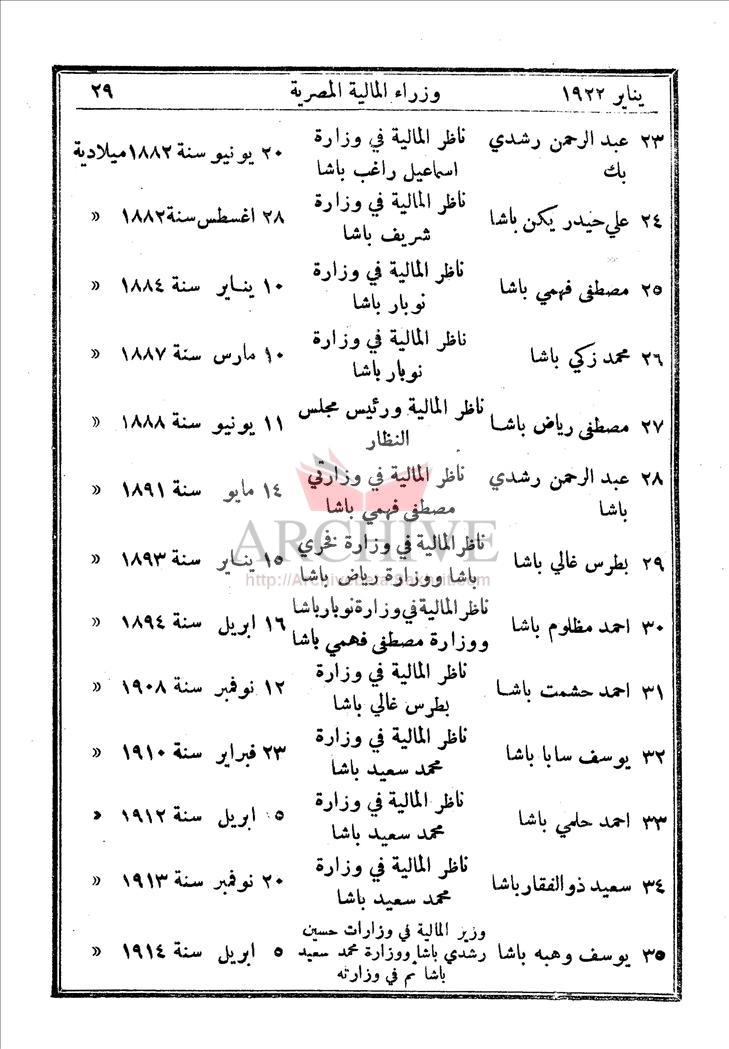 يناير ١٩٢٢ وزراء المالية المصرية ٢٩
٢٣ عبد الرحمن رشدي بك ناظر المالية في وزارة اسماعيل راغب باشا ٢٠ يونيو سنة ١٨٨٢ ميلادية
٢٤ علي حيدر يكن باشا ناظر المالية في وزارة شريف باشا ٢٨ اغسطس سنة ١٨٨٢ »
٢٥ مصطفى فهمي باشا ناظر المالية في وزارة نوبار باشا ١٠ يناير سنة ١٨٨٤ »
٢٦ محمد زكي باشا ناظر المالية في وزارة نوبار باشا ١٠ مارس سنة ١٨٨٧ »
٢٧ مصطفى رياض باشا ناظر المالية ورئيس مجلس النظار ١١ يونيو سنة ١٨٨٨ »
٢٨ عبد الرحمن رشدي باشا ناظر المالية في وزارتي مصطفى فهمي باشا ١٤ مايو سنة ١٨٩١ »
ARCHIVE
٢٩ بطرس غالي باشا ناظر المالية في وزارة فخري باشا ووزارة رياض باشا ١٥ يناير سنة ١٨٩٣ »
٣٠ احمد مظلوم باشا ناظر المالية في وزارة نوبار باشا ووزارة مصطفى فهمي باشا ١٦ ابريل سنة ١٨٩٤ »
٣١ احمد حشمت باشا ناظر المالية في وزارة بطرس غالي باشا ١٢ نوفمبر سنة ١٩٠٨ »
٣٢ يوسف سابا باشا ناظر المالية في وزارة محمد سعيد باشا ٢٣ فبراير سنة ١٩١٠ »
٣٣ احمد حلمي باشا ناظر المالية في وزارة محمد سعيد باشا ٥ ابريل سنة ١٩١٢ »
٣٤ سعيد ذو الفقار باشا ناظر المالية في وزارة محمد سعيد باشا ٢٠ نوفمبر سنة ١٩١٣ »
٣٥ يوسف وهبه باشا وزير المالية في وزارات حسين رشدي باشا ووزارة محمد سعيد باشا ثم في وزارته ٥ ابريل سنة ١٩١٤ »